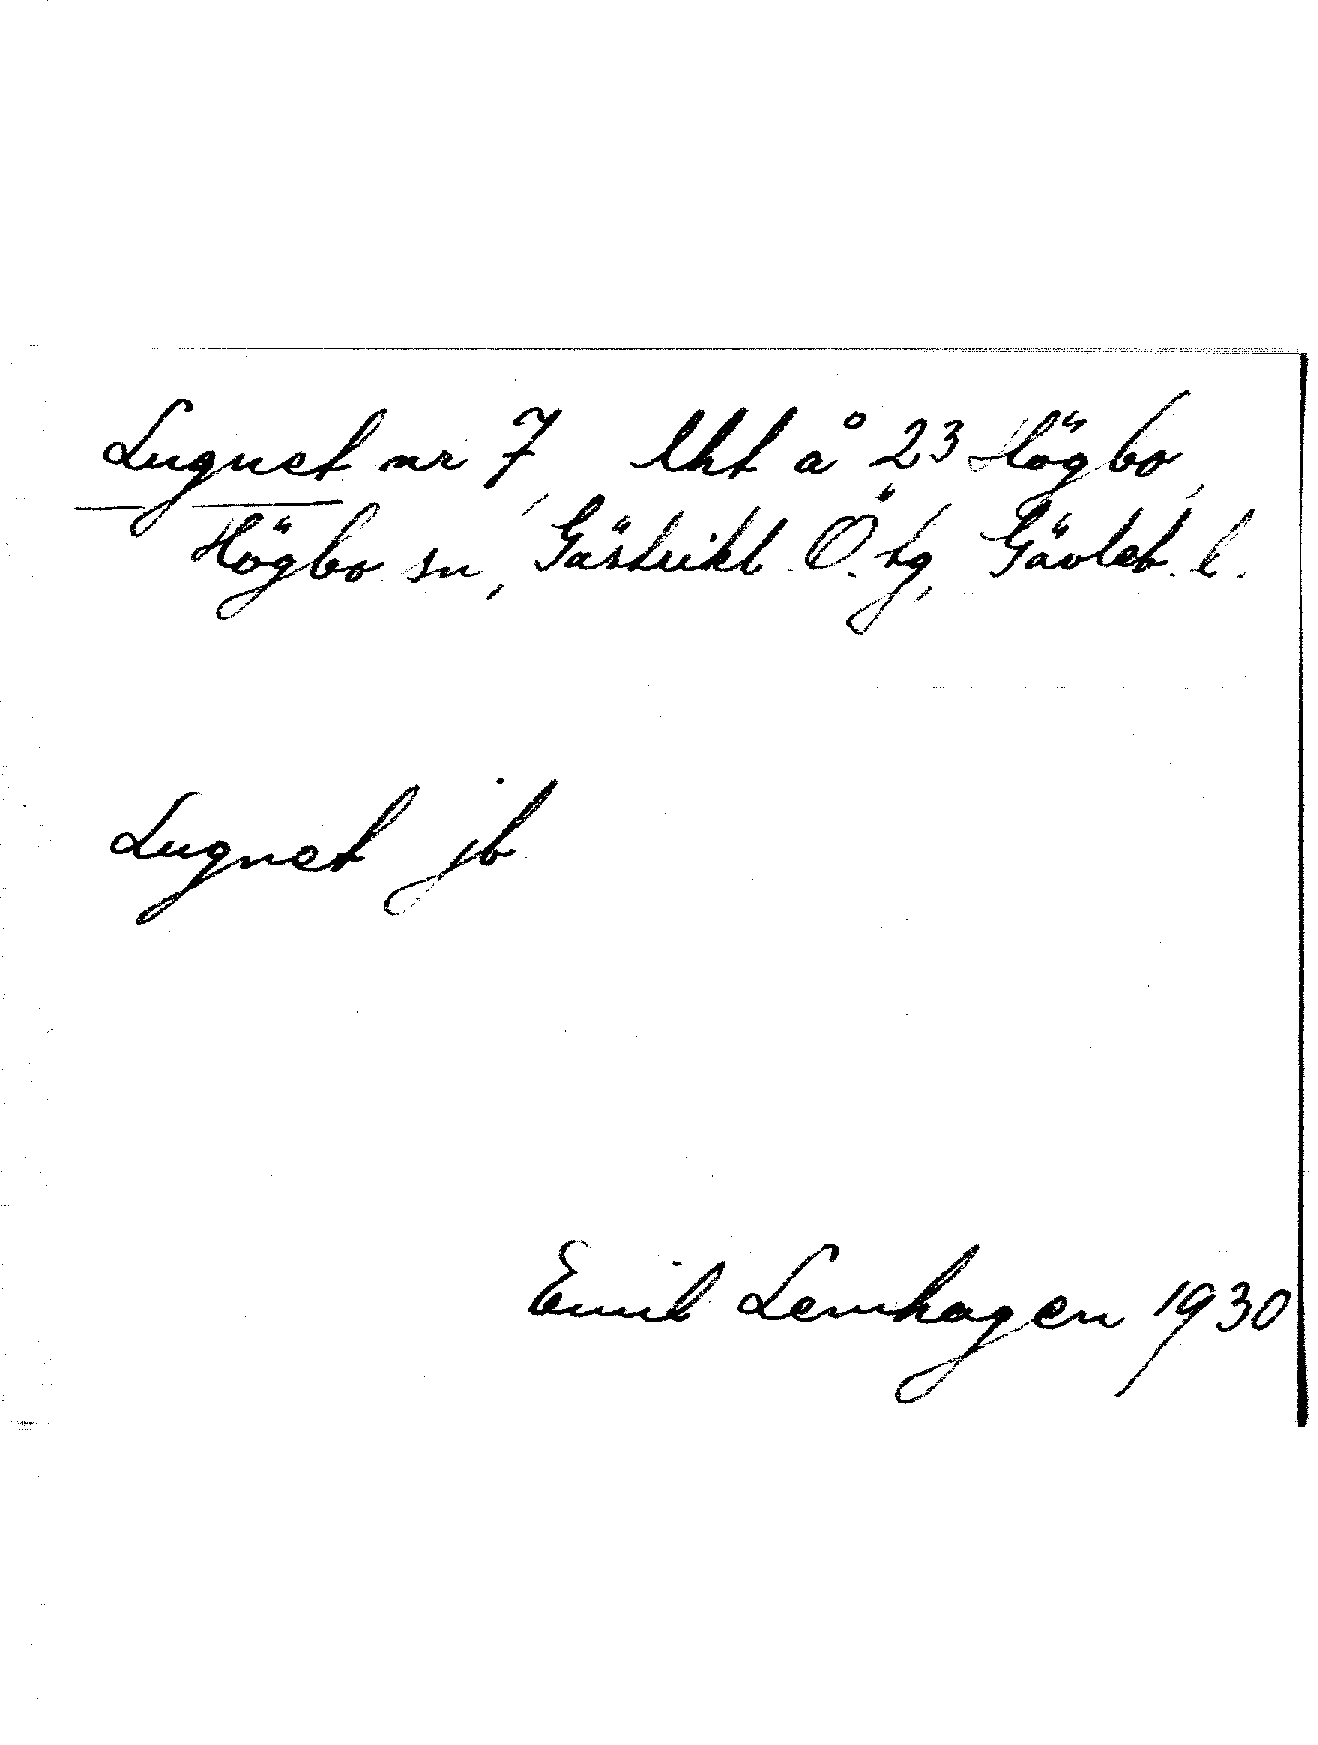 Lugnet nr 7, lht å 23 Högbo,
Högbo sn, Gästrikl. Ö. tg, Gävleb. l.
Lugnet jb
Emil Lernhagen 1930